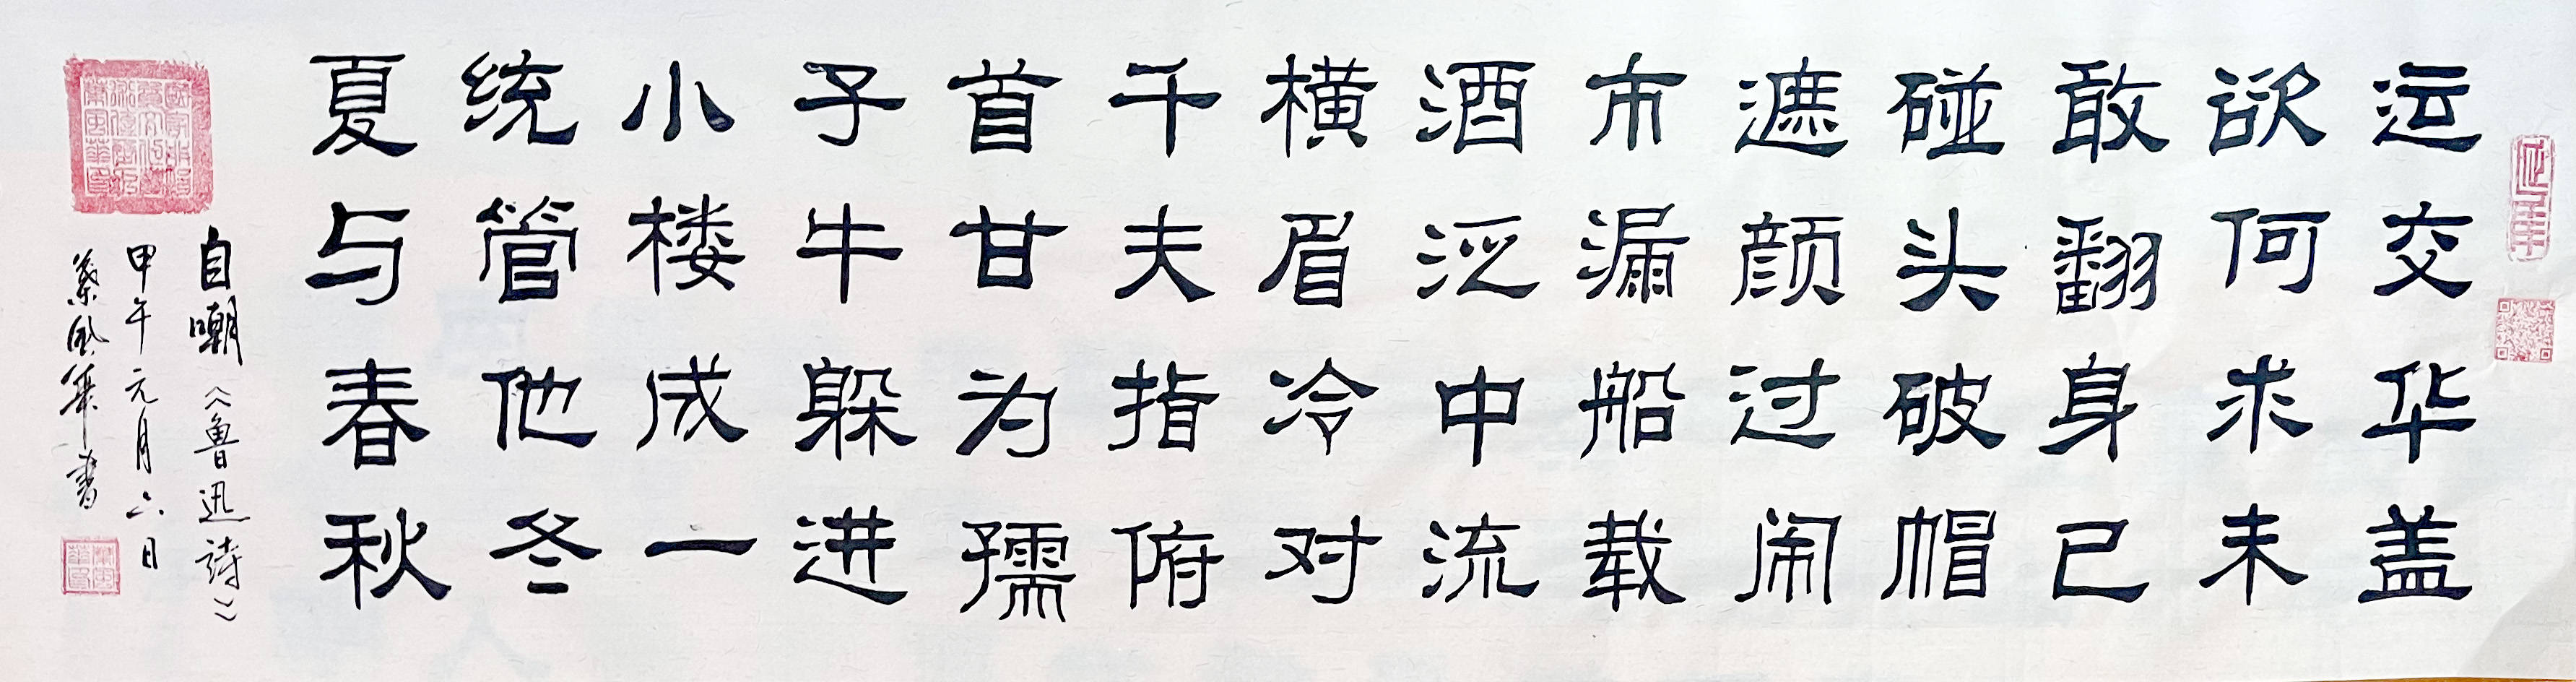 运交华盖
欲何求未
敢翻身已
碰头破帽
遮颜过闹
市漏船载
酒泛中流
横眉冷对
千夫指俯
首甘为孺
子牛躲进
小楼成一
统管他冬
夏与春秋
自嘲《魯迅詩》
甲午元月六日
書